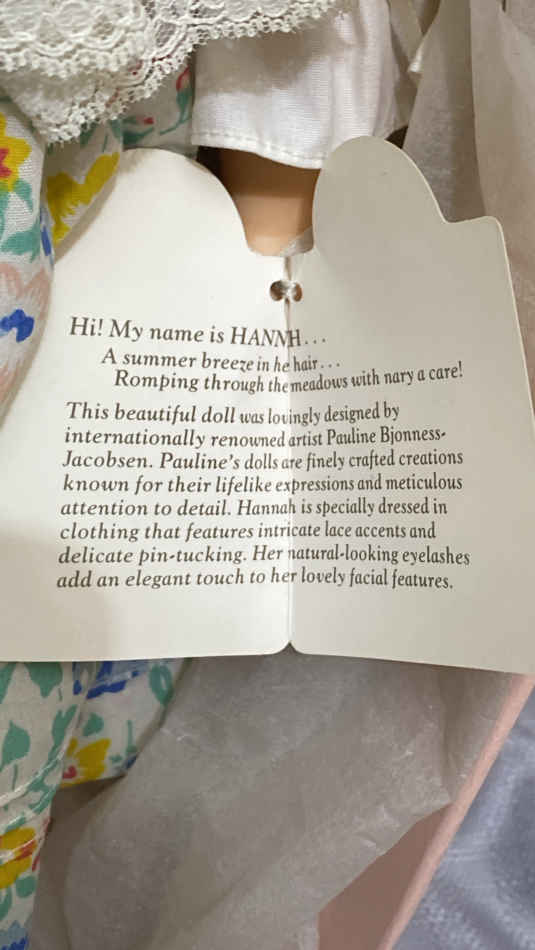 Hi! My name is HANNH...
A summer breeze in he hair...
Romping through the meadows with nary a care!
This beautiful doll was lovingly designed by
internationally renowned artist Pauline Bjonness-
Jacobsen. Pauline's dolls are finely crafted creations
known for their lifelike expressions and meticulous
attention to detail. Hannah is specially dressed in
clothing that features intricate lace accents and
delicate pin-tucking. Her natural-looking eyelashes
add an elegant touch to her lovely facial features.